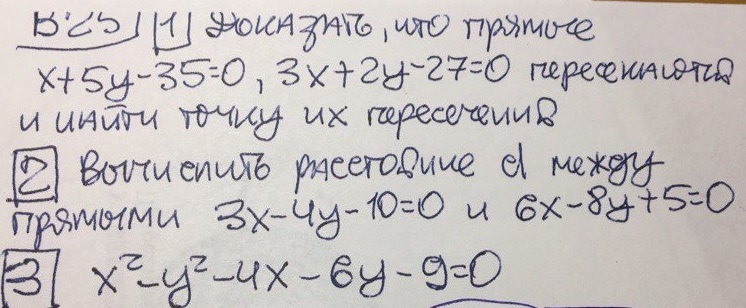 В25 1 Доказать, что прямые
x+5y-35=0, 3x+2y-27=0 пересекаются
и найти точку их пересечения
2 Вычислить расстояние d между
прямыми 3x-4y-10=0 и 6x-8y+5=0
3 x²-y²-4x-6y-9=0